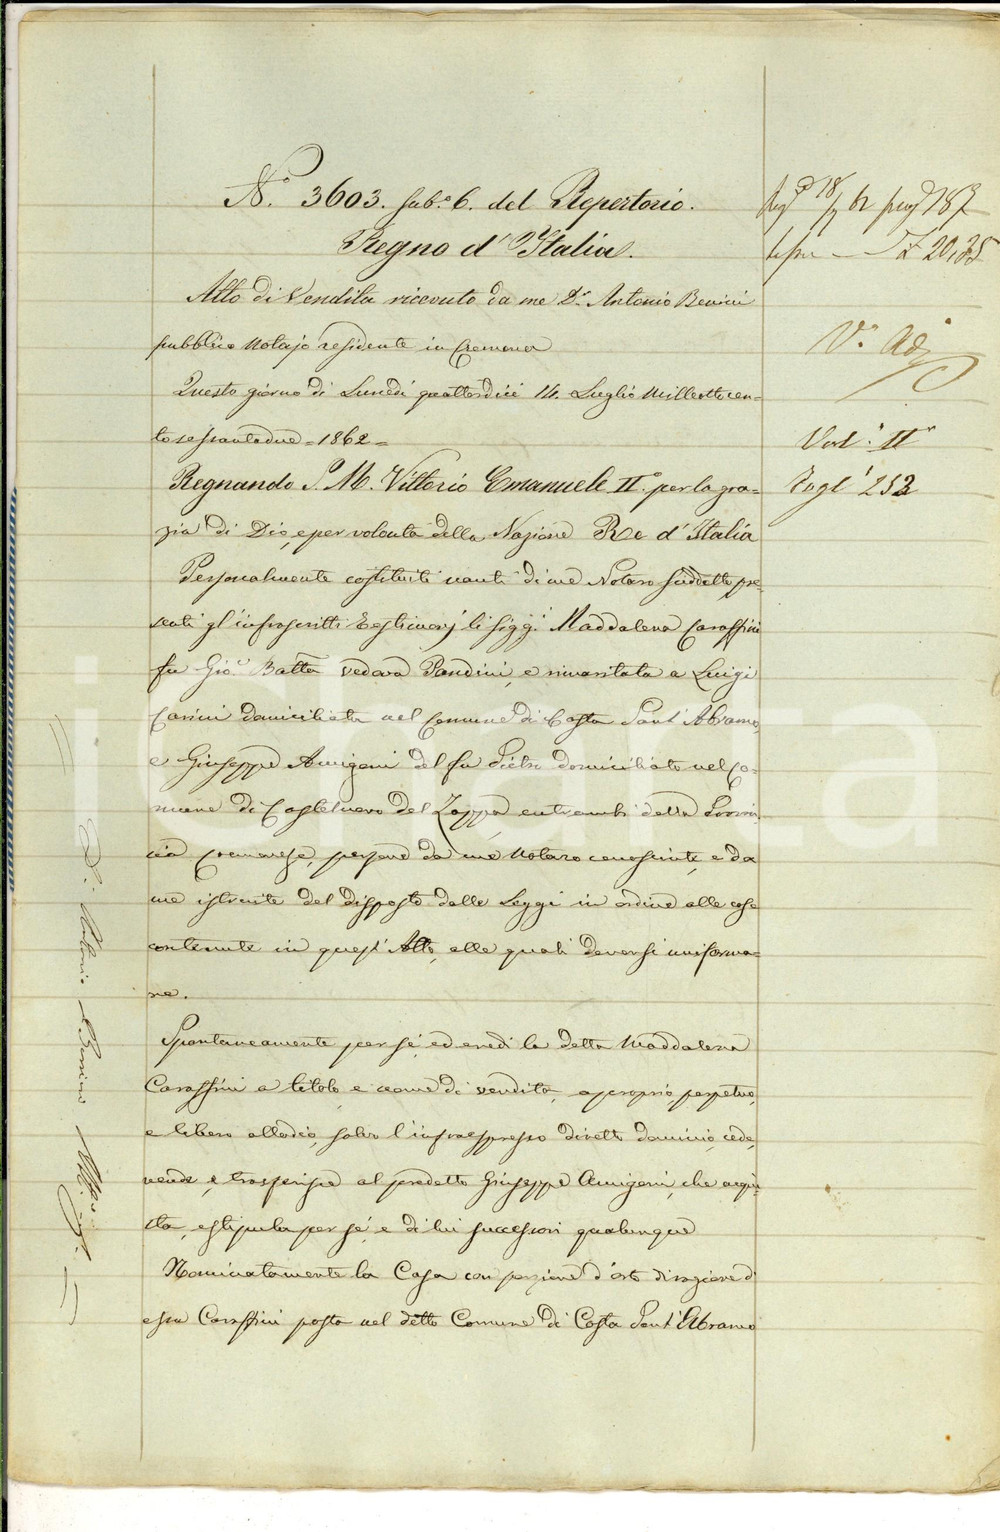 N.° 3603. sub.° 6. del Repertorio.
Regno d'Italia.
Atto di Vendita ricevuto da me D.r Antonio
pubblico Notajo residente in Cremona
Questo giorno di Lunedì quattordici 14. Luglio milleottocen-
tosessantadue = 1862 =
Regnando S. M. Vittorio Emanuele II.° per la gra-
zia di Dio, e per volontà della Nazione Re d'Italia
Personalmente costituiti nanti di me Notaro suddetto pre-
senti gl'infrascritti Testimonj li Sigg.i Maddalena Caraffini
fu Gio. Batta vedova Pandini, e rimaritata a Luigi
Casini domiciliata nel Comune di Costa Sant'Abramo,
e Giuseppe Amigoni del fu Pietro domiciliato nel Co-
mune di Castelnuovo del Zappa entrambi della Provin-
cia Cremonese, persone da me Notaro conosciute, e da
me istruite del disposto delle Leggi in ordine alle cose
contenute in quest'Atto, alle quali deversi uniforma-
re.
Spontaneamente per sé, ed eredi la detta Maddalena
Caraffini a titolo e nome di vendita, a proprio, perpetuo,
e libero allodio, salvo l'infraespresso diretto dominio, cede,
vende, e trasferisce al predetto Giuseppe Amigoni, che acqui-
sta, e stipula per sé, e di lui successori qualunque
Nominatamente la Casa con porzione d'orto di ragione di
essa Caraffini posta nel detto Comune di Costa Sant'Abramo
62 187
20,35
V.°
Vol. II°
Fogl. 253
D.r Antonio